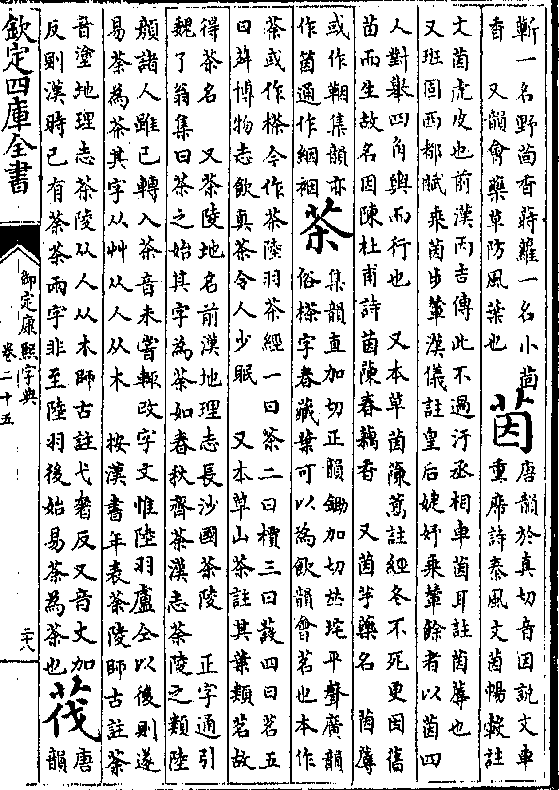 蘄一名野茴香蔣蘿一名小茴
香 又韻會藥草防風葉也
茵
唐韻於真切音因説文車
重席詩秦風文茵暢轂註
文茵虎皮也前漢丙吉傳此不過汙丞相車茵耳註茵蓐也
又班固西都賦乘茵步輦漢儀註皇后婕妤乘輦餘者以茵四
人對舉四角輿而行也 又本草茵蔯蒿註經冬不死更因舊
苗而生故名因陳杜甫詩茵陳春藕香 又茵芋藥名 茵蓐
或作鞇集韻亦
作筃通作絪裀
茶
集韻直加切正韻鋤加切𠀤垞平聲廣韻
俗𣘻字春藏葉可以為飲韻會茗也本作
荼或作𣘻今作茶陸羽茶經一曰茶二曰檟三曰蔎四曰茗五
曰荈博物志飲真茶令人少眠 又本草山茶註其葉類茗故
得茶名 又茶陵地名前漢地理志長沙國茶陵 正字通引
魏了翁集曰茶之始其字為荼如春秋齊荼漢志荼陵之類陸
顏諸人雖已轉入茶音未嘗輒改字文惟陸羽盧仝以後則遂
易荼為茶其字从艸从人从木 按漢書年表荼陵師古註荼
音塗地理志茶陵从人从木師古註弋奢反又音丈加
反則漢時已有荼茶兩字非至陸羽後始易荼為茶也
茷
唐
韻
欽定四庫全書
御定康熙字典
卷二十五
二十八